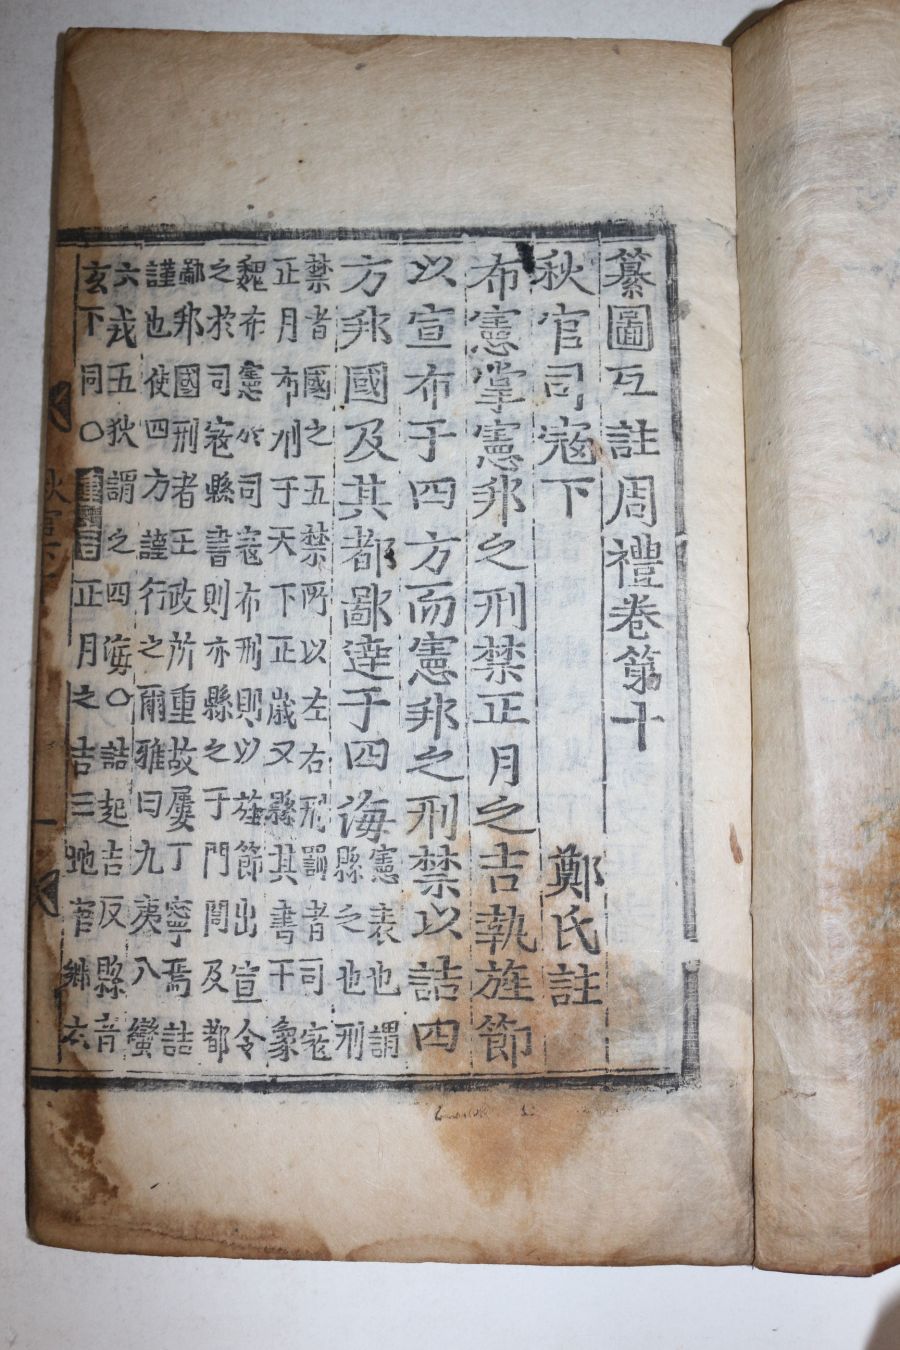 纂圖互註周禮卷第十
秋官司寇下
鄭氏註
布憲掌憲邦之刑禁正月之吉執旌節
以宣布于四方而憲邦之刑禁以詰四
方邦國及其都鄙達于四海
憲表也謂
縣之也刑
禁者國之五禁所以左右刑罰者司寇
正月布刑于天下正歲又縣其書于象
魏布憲於司寇布刑則以旌節出宣令
之於司寇縣書則亦縣之于門閭及都
鄙邦國刑者王政所重故屢丁寧焉詰
謹也使四方謹行之爾雅曰九夷八蠻
六戎五狄謂之四海○詰起吉反縣音
玄下同○
正月之吉三地官鄉大